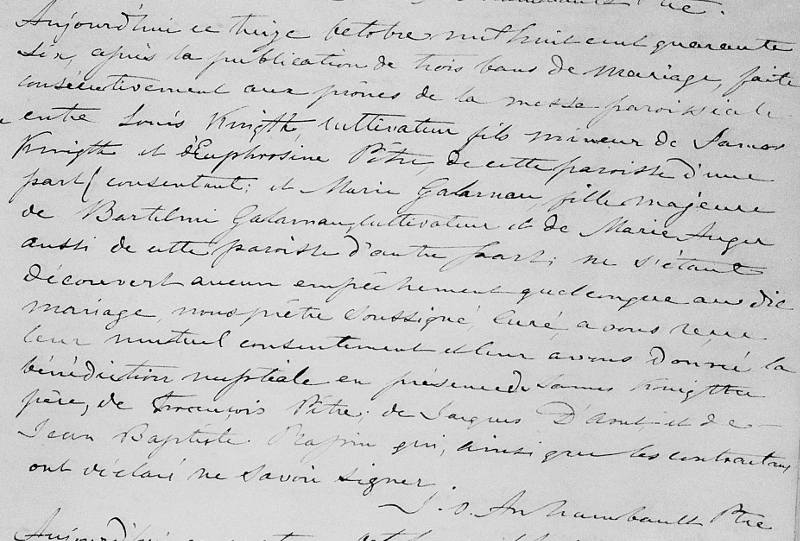 Aujourd'hui ce treize octobre mil huit cent quarante
six, après la publication de trois bans de mariage, faite
consécutivement aux prônes de la messe paroissiale
entre Louis Knigth, cultivateur fils mineur de James
Knigth et d'Euphrosine Pitre, de cette paroisse d'une
part (consentant; et Marie Galarnau, fille majeure
de Bartilmi Galarnau, cultivateur et de Marie Auger
aussi de cette paroisse d'autre part; ne s'étant
découvert aucun empêchement quelconque au dit
mariage, nous prêtre soussigné, curé, avons reçu
leur mutuel consentement et leur avons donné la
bénédiction nuptiale en présence de James Knigth
père, de François Pitre; de Jacques et de
Jean Baptiste qui, ainsi que les contractans
ont déclaré ne savoir signer
J. O. Archambault Ptre
Aujourd'hui